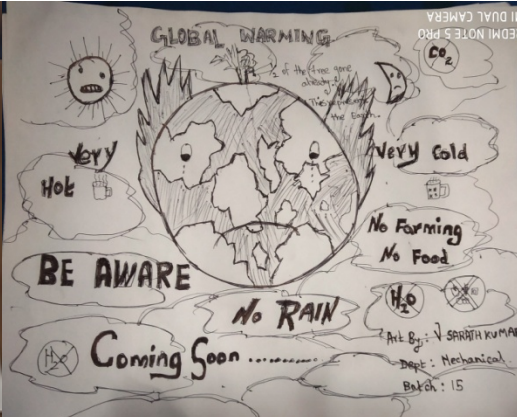 REDMI NOTE 5 PRO
MI DUAL CAMERA
GLOBAL WARMING
CO2
1/2 of the tree gone
already.
This represents
the Earth.
Very
Hot
Very Cold
No Farming
No Food
BE AWARE
No RAIN
H2O
H2O
Coming Soon ..........
Art By: V SARATH KUMAR
Dept: Mechanical
Batch: 15